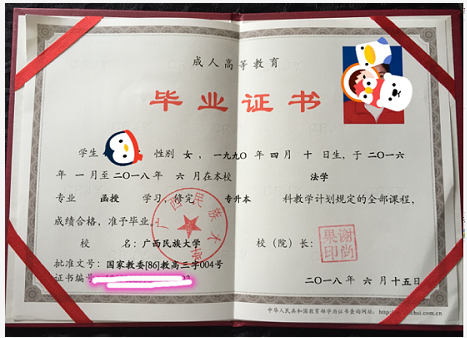 成人高等教育
毕业证书
学生 性别 女，一九九〇年 四 月 十 日生，于二〇一六
年 一 月至二〇一八年 六 月在本校 法学
专业 函授 学习，修完 专升本 科教学计划规定的全部课程，
成绩合格，准予毕业。
校 名：广西民族大学 校（院）长：谢尚果印
批准文号：国家教委[86]教高三字004号
证书编号：
二〇一八年 六 月十五日
中华人民共和国教育部学历证书查询网址：
广西民族大学